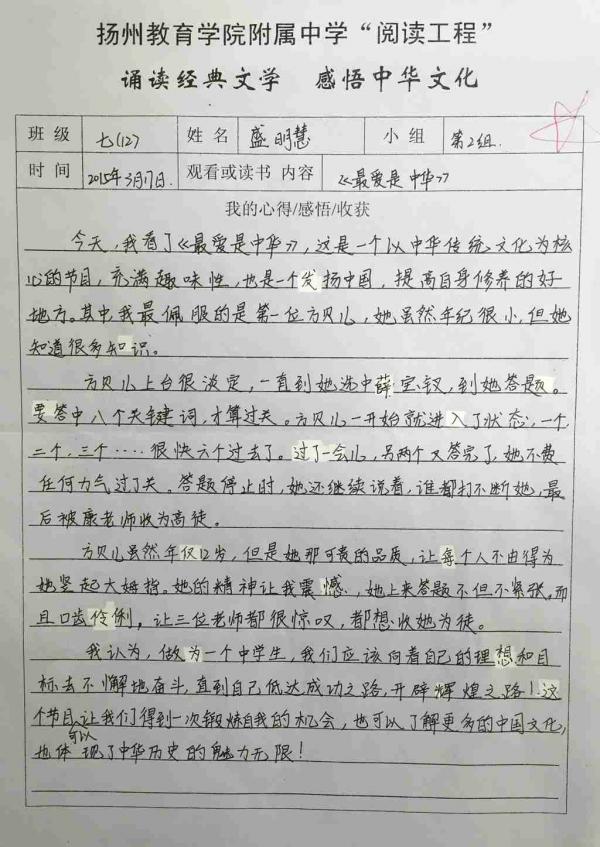 扬州教育学院附属中学“阅读工程”
诵读经典文学 感悟中华文化
班级 七(12) 姓名 盛明慧 小组 第2组.
时间 2015年3月17日. 观看或读书 内容 《最爱是中华》
我的心得/感悟/收获
今天,我看了《最爱是中华》,这是一个以中华传统文化为核
心的节目,充满趣味性,也是一个发扬中国,提高自身修养的好
地方。其中,我最佩服的是第一位方贝儿,她虽然年纪很小,但她
知道很多知识。
方贝儿上台很淡定,一直到她选中薛宝钗,到她答题。
要答中八个关键词,才算过关。方贝儿一开始就进入了状态,一个
二个,三个……很快六个过去了。过了一会儿,另两个又答完了,她不费
任何力气过了关。答题停止时,她还继续说着,谁都打不断她,最
后被康老师收为高徒。
方贝儿虽然年仅12岁,但是她那可贵的品质,让每个人不由得为
她竖起大姆指。她的精神让我震憾,她上来答题不但不紧张,而
且口齿伶俐,让三位老师都很惊叹,都想收她为徒。
我认为,做为一个中学生,我们应该向着自己的理想和目
标去不懈地奋斗,直到自己低达成功之路,开辟辉煌之路!这
个节目让我们得到一次锻炼自我的机会,也可以了解更多的中国文化,
也可以体现了中华历史的魅力无限!